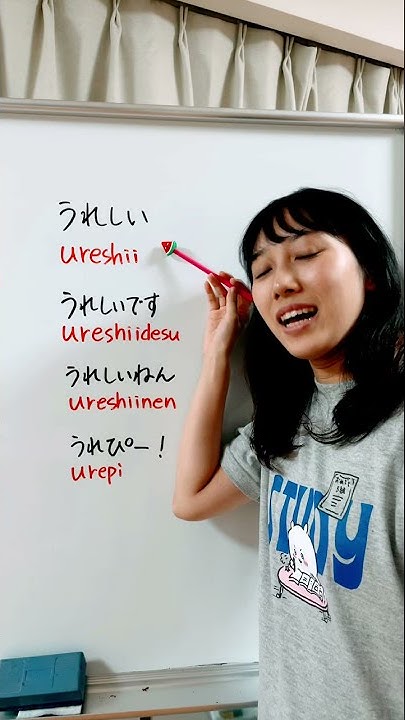 うれしい
ureshii
うれしいです
ureshiidesu
うれしいねん
ureshiinen
うれぴー！
urepi
STUDY